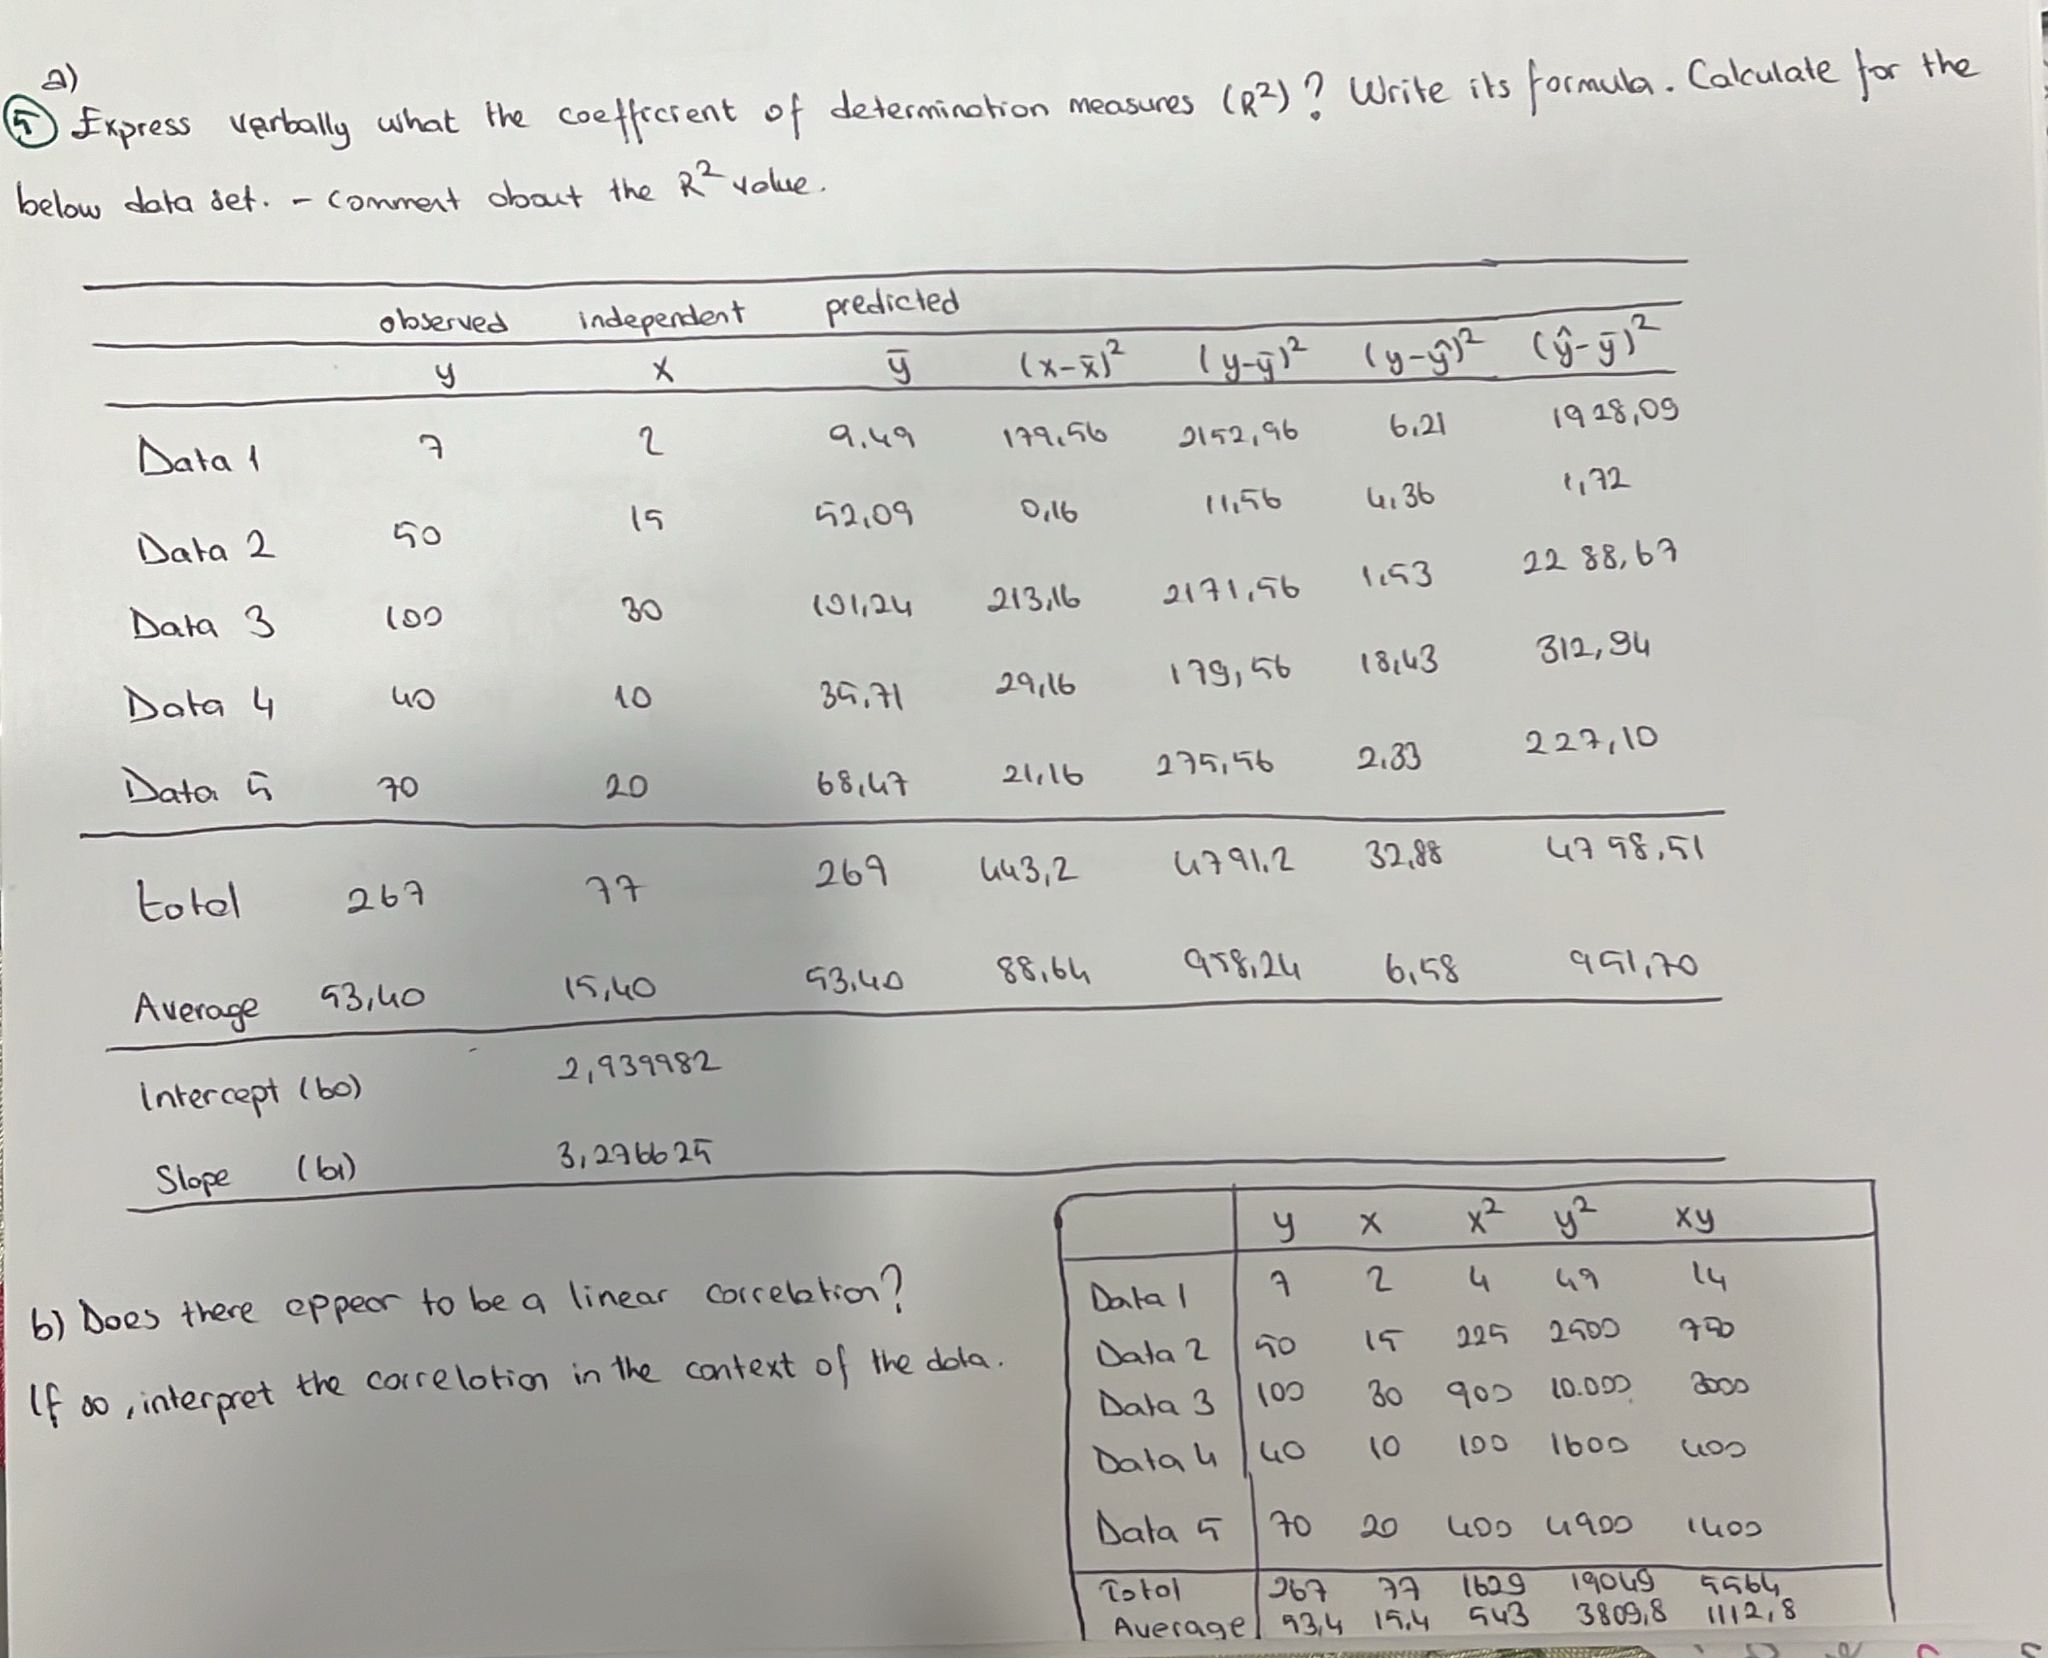 a)
5 Express verbally what the coeffıcıent of determination measures (R²)? Write its formula. Calculate for the
below data set. - Comment about the R² value.
observed independent predicted
y x ȳ (x-x̄)² (y-ȳ)² (y-ŷ)² (ŷ-ȳ)²
Data 1 7 2 9.49 179,56 2152,96 6,21 1928,09
Data 2 50 15 52,09 0,16 11,56 4,36 1,72
Data 3 100 30 101,24 213,16 2171,56 1,53 2288,67
Data 4 40 10 35,71 29,16 179,56 18,43 312,94
Data 5 70 20 68,47 21,16 275,56 2,33 227,10
total 267 77 269 443,2 4791,2 32,88 4798,51
Average 53,40 15,40 53,40 88,64 958,24 6,58 951,70
Intercept (b0) 2,939982
Slope (b1) 3,276625
b) Does there appear to be a linear correlation?
If so, interpret the correlation in the context of the data.
y x x² y² xy
Data 1 7 2 4 49 14
Data 2 50 15 225 2500 750
Data 3 100 30 900 10.000 3000
Data 4 40 10 100 1600 400
Data 5 70 20 400 4900 1400
Total 267 77 1629 19049 5564
Average 53,4 15,4 543 3809,8 1112,8